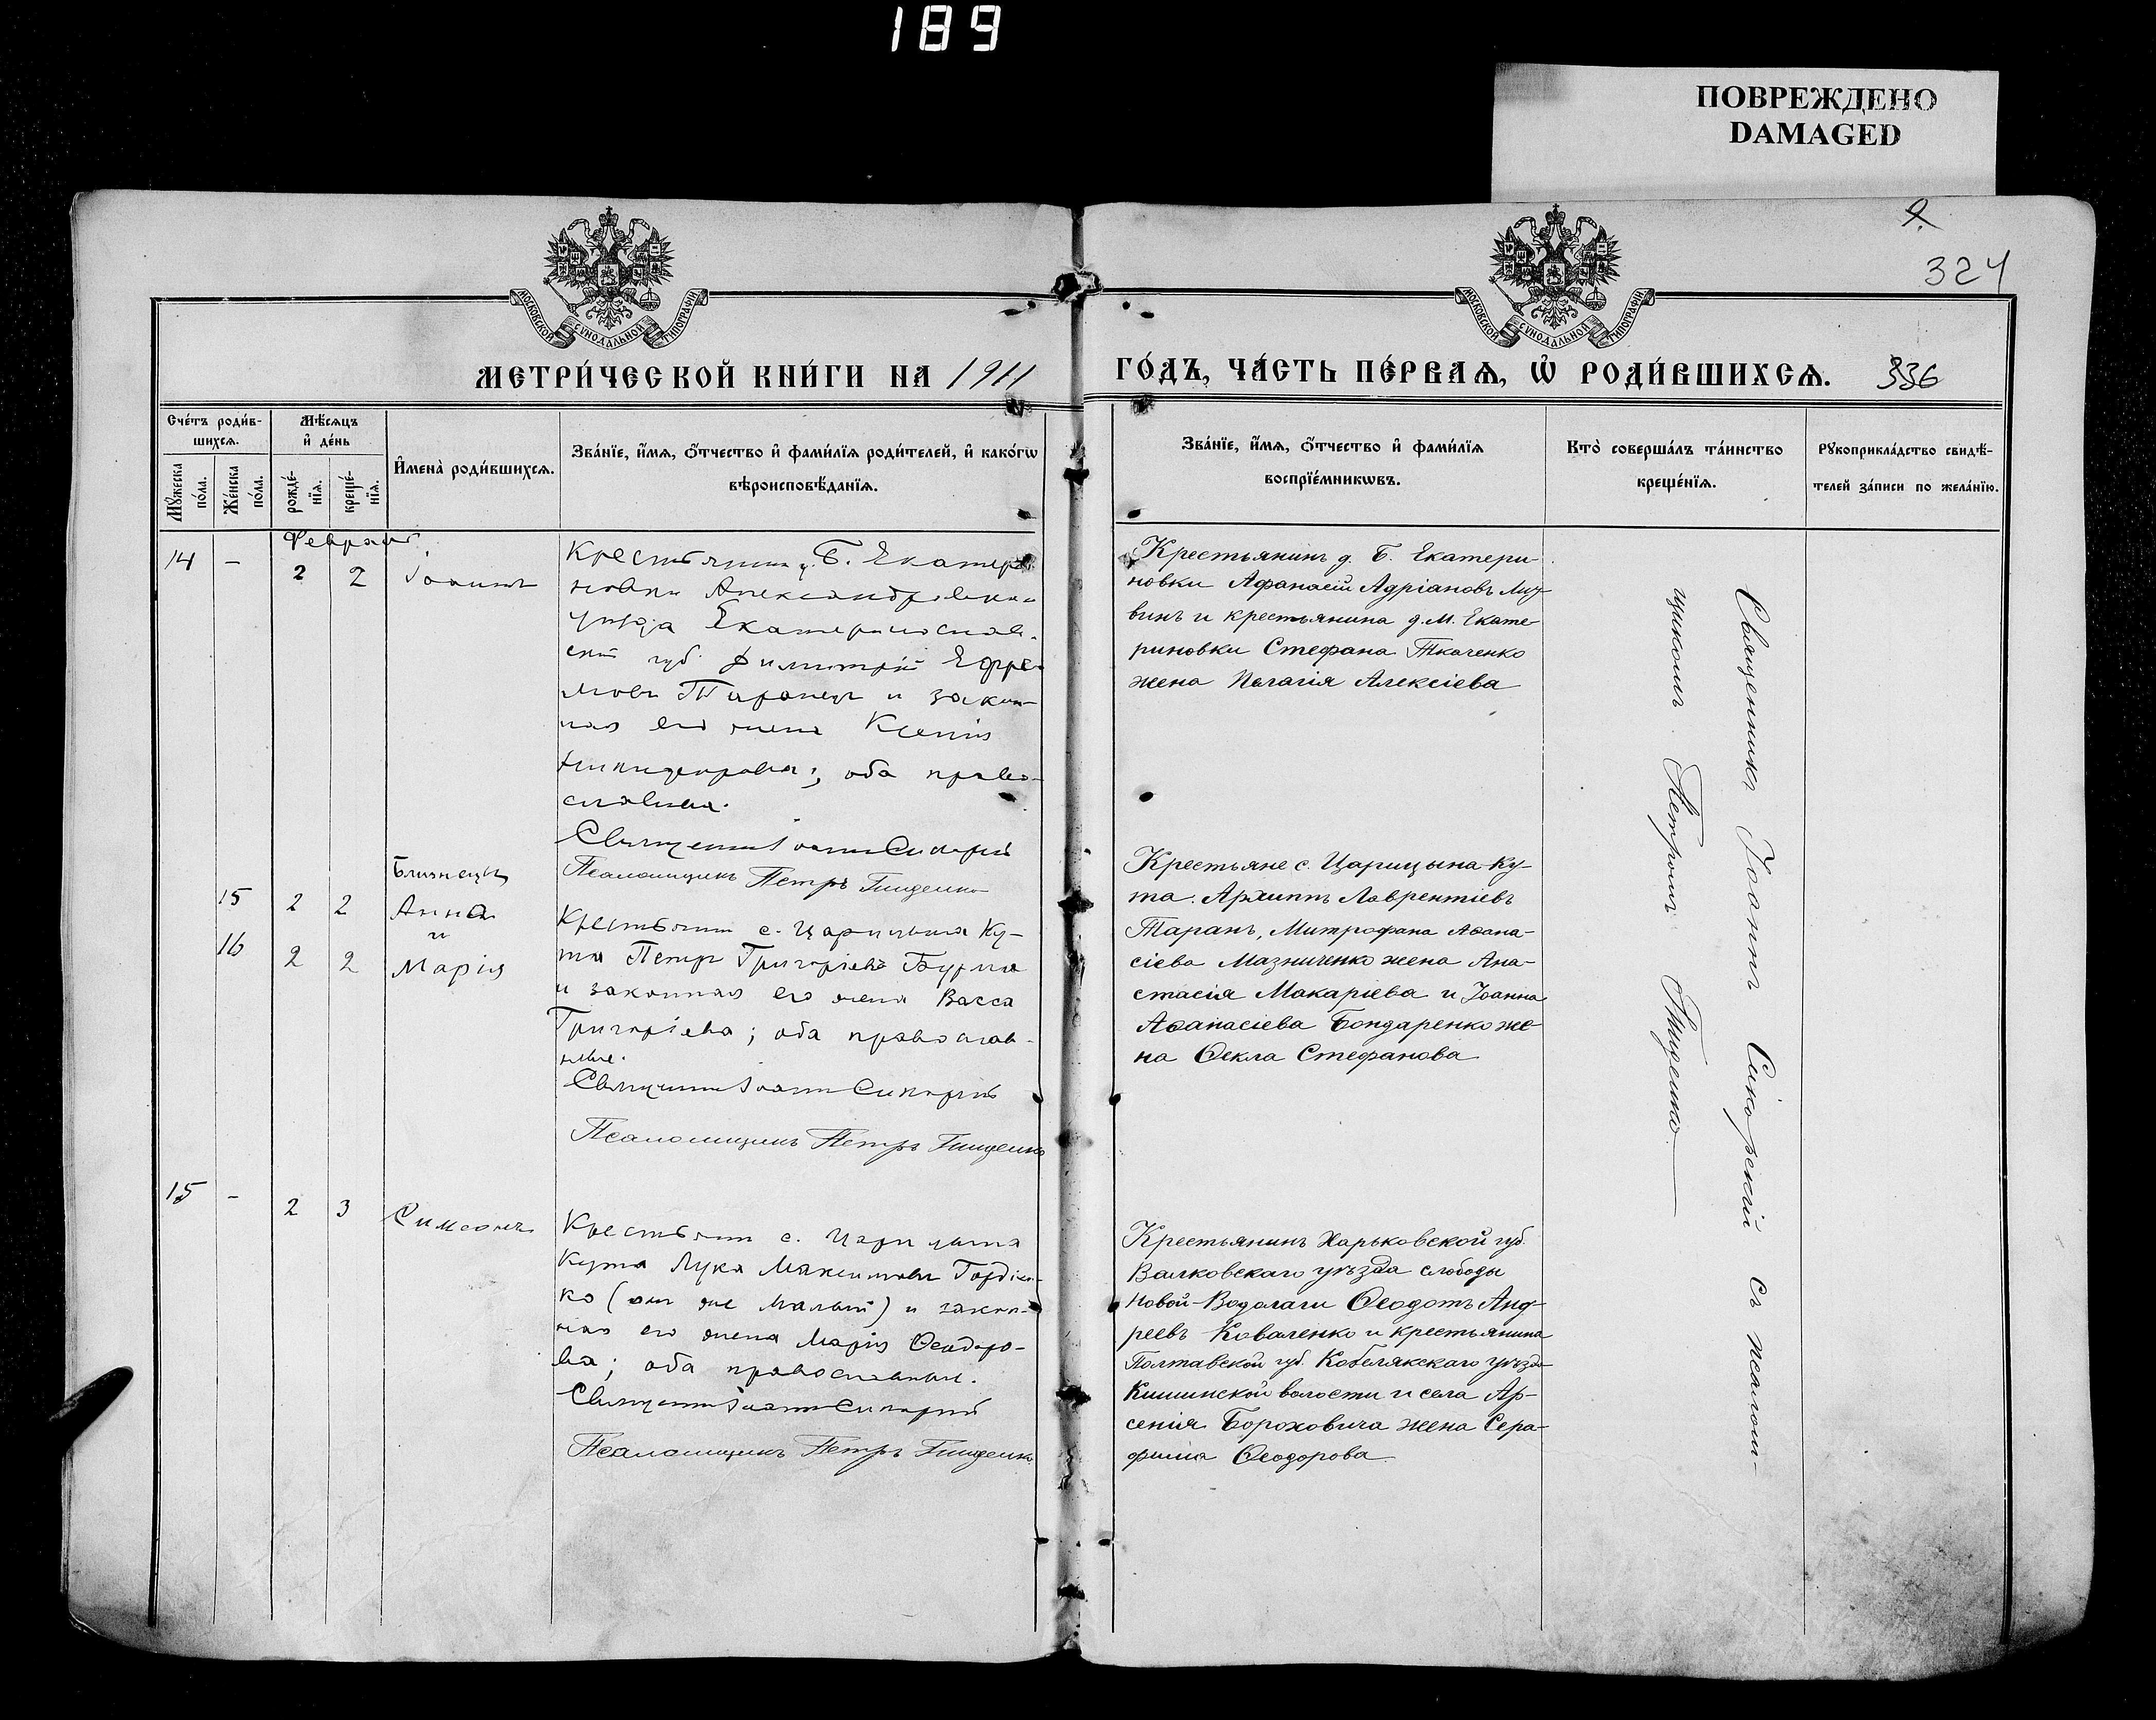 189
ПОВРЕЖДЕНО
DAMAGED
324
МОСКОВСКОЙ СУНОДАЛЬНОЙ ТИПОГРАФІИ
МОСКОВСКОЙ СУНОДАЛЬНОЙ ТИПОГРАФІИ
МЕТРИ́ЧЕСКОЙ КНИ́ГИ НА 1911
ГО́ДЪ, ЧА́СТЬ ПЕ́РВАѦ, Ѡ҆ РОДИ́ВШИХСѦ. 336
Сче́тъ роди́в-
шихсѧ.
Мѣ́сѧцъ
и҆ де́нь
Мꙋ́жеска
по́ла.
Же́нска
по́ла.
рожде́-
нїѧ.
креще́-
нїѧ.
И҆мена̀ роди́вшихсѧ.
Зва́нїе, и҆́мѧ, ѻ҆́тчество и҆ фами́лїѧ роди́телей, и҆ како́гѡ
вѣроисповѣ́данїѧ.
Зва́нїе, и҆́мѧ, ѻ҆́тчество и҆ фами́лїѧ
воспрїе́мникѡвъ.
Кто̀ соверша́лъ та́инство
креще́нїѧ.
Рꙋкоприкла́дство свидѣ́-
телей за́писи по жела́нїю.
Февраль
14 - 2 2 Іоаннъ
Крестьянин д. Б. Екатери
новки Александровскаго
уѣзда Екатеринослав.
ской губ. Димитрій Ефре
мовъ Таранецъ и закон-
ная его жена Ксенія
; оба право-
славные.
Священникъ Іоаннъ Сікорскій
Псаломщикъ Петръ Гнщенко
Крестьянинъ д. Б. Екатери
новки Афанасій Адріановъ Лит
винъ и крестьянина д. М. Екате
риновки Стефана Ткаченко
жена Пелагія Алексіева
Близнецы
15 2 2 Анна
и
16 2 2 Марія
Крестьянин с. Царицына Ку-
та Петръ Григоріевъ Бурма
и законная его жена Васса
Григоріева; оба православ-
ные.
Священникъ Іоаннъ Сікорскій
Псаломщикъ Петръ
Крестьяне с. Царицына-Ку-
та. Архиппъ Лаврентіевъ
Таранъ, Митрофана Аѳана-
сіева Мазниченко жена Ана-
стасія Макаріева и Іоанна
Аѳанасіева Бондаренко же-
на Ѳекла Стефанова
15 - 2 3 Симеонъ
Крестьянин с. Царицына
Кута Лука Максимовъ Гордіен-
ко (онъ же Малый) и закон-
ная его жена Марія Ѳеодоро-
ва; оба православные.
Священникъ Іоаннъ Сікорскій
Псаломщикъ Петръ
Крестьянинъ Харьковской губ.
Валковскаго уѣзда слободы
Новой-Водолаги Ѳеодотъ Анд-
реевъ Коваленко и крестьянина
Полтавской губ. Кобелякскаго уѣзда
Кишинской волости и села Ар-
сенія Бороховича жена Сера-
фима Ѳеодорова
Священникъ Іоаннъ Сікорскій съ псалом-
щикомъ Петромъ